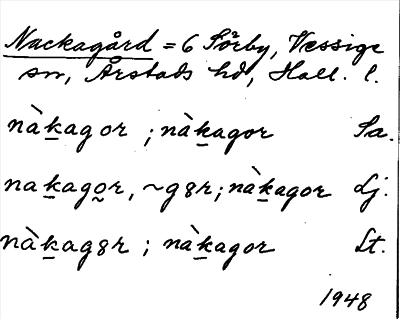 Nackagård = 6 Sörby, Vessige
sn, Årstads hd, Hall. l.
nàk̲agor ; nàk̲agor Sa.
nak̲ago̰r, ~g8r; nàk̲agor Lj.
nàk̲ag8r ; nàk̲agor St.
1948